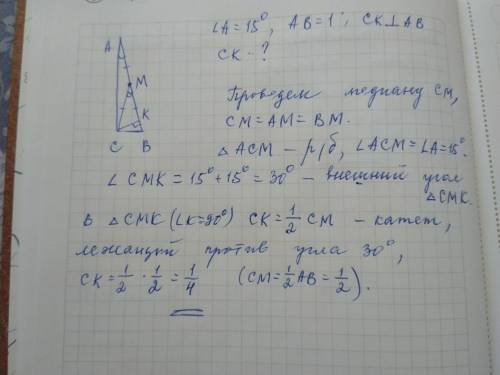 ∠A = 15°, AB = 1, CK ⊥ AB
CK - ?
A
M
K
C B
Проведем медиану CM,
CM = AM = BM.
△ACM – р/б, ∠ACM = ∠A = 15°.
∠CMK = 15° + 15° = 30° – внешний угол
△CMK.
В △CMK (∠K = 90°) CK = 1/2 CM – катет,
лежащий против угла 30°,
CK = 1/2 · 1/2 = 1/4 (CM = 1/2 AB = 1/2).